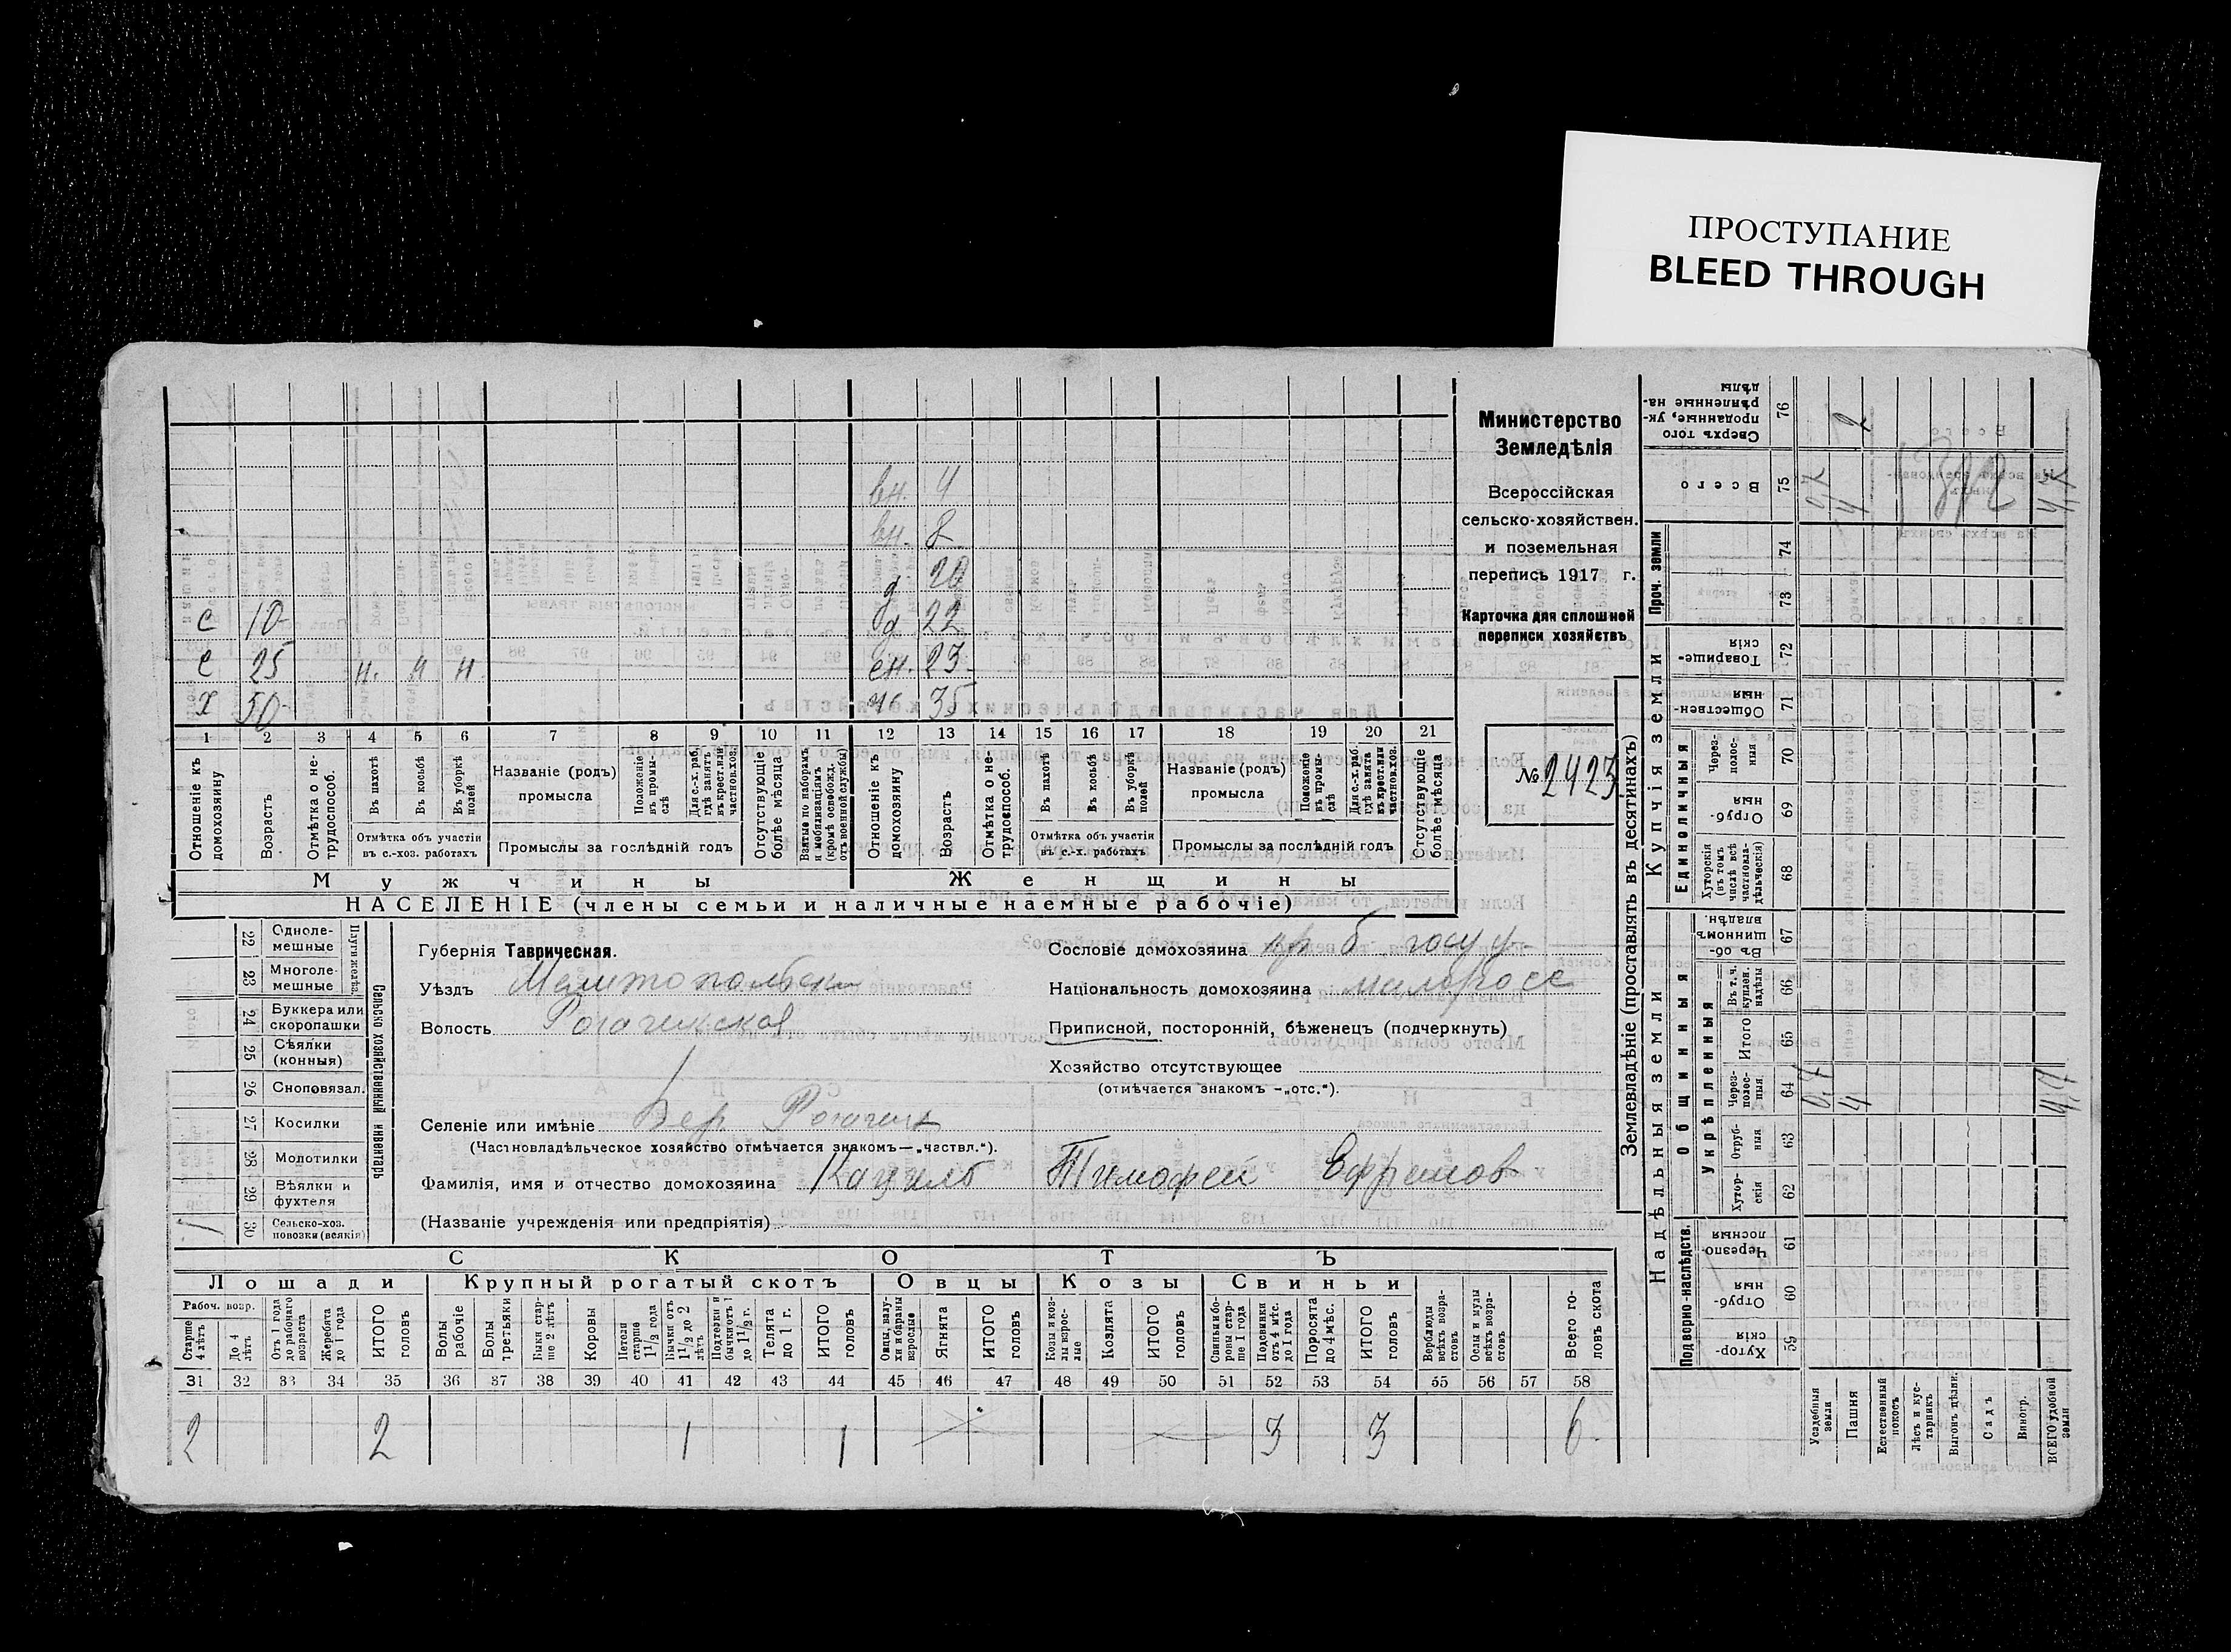 ПРОСТУПАНИЕ
BLEED THROUGH
Министерство
Земледѣлія
Всероссійская
сельско-хозяйствен.
и поземельная
перепись 1917 г.
Карточка для сплошной
переписи хозяйствъ
№ 2423
вн. 4
вн. 8
д 20
с 10 д 22
с 25 н. н н 23
х 50 35
1 2 3 4 5 6 7 8 9 10 11 12 13 14 15 16 17 18 19 20 21
Отношеніе къ домохозяину
Возрастъ
Отмѣтка о не-трудоспособ.
Въ пахотѣ
Въ косьбѣ
Въ уборкѣ полей
Отмѣтка объ участіи въ с.-хоз. работахъ
Названіе (родъ) промысла
Положеніе въ промы-слѣ
Для с.-х. раб. гдѣ занятъ въ крест. или частнов. хоз.
Промыслы за послѣдній годъ
Отсутствующіе болѣе мѣсяца
Взятые по наборамъ и мобилизаціямъ (кромѣ освобожд. отъ военной службы)
Отношеніе къ домохозяину
Возрастъ
Отмѣтка о не-трудоспособ.
Въ пахотѣ
Въ косьбѣ
Въ уборкѣ полей
Отмѣтка объ участіи въ с.-х. работахъ
Названіе (родъ) промысла
Положеніе въ промы-слѣ
Для с.-х. раб. гдѣ занята въ крест. или частнов. хоз.
Промыслы за послѣдній годъ
Отсутствующіе болѣе мѣсяца
Мужчины Женщины
НАСЕЛЕНІЕ (члены семьи и наличные наемные рабочіе)
Сельско хозяйственный инвентарь
Плуги желѣз.
22 Одноле-мешные
23 Многоле-мешные
24 Буккера или скоропашки
25 Сѣялки (конныя)
26 Сноповязал.
27 Косилки
28 Молотилки
29 Вѣялки и фухтеля
30 Сельско-хоз. повозки (всякія) 1
Губернія Таврическая.
Уѣздъ Мелитопольскій
Волость Рогачикская
Селеніе или имѣніе Вер Рогачик
(Частновладѣльческое хозяйство отмѣчается знакомъ—„частвл.“).
Сословіе домохозяина кр б госуд
Національность домохозяина малоросс
Приписной, посторонній, бѣженецъ (подчеркнуть)
Хозяйство отсутствующее
(отмѣчается знакомъ -„отс.“).
Фамилія, имя и отчество домохозяина Тимофей Ефремов
(Названіе учрежденія или предпріятія)
СКОТЪ
Лошади Крупный рогатый скотъ Овцы Козы Свиньи
Рабоч. возр.
Старше 4 лѣтъ
До 4 лѣтъ
Отъ 1 года до рабочаго возраста
Жеребята до 1 года
ИТОГО головъ
Волы рабочіе
Волы третьяки
Быки стар-ше 2 лѣтъ
Коровы
Нетели старше 1 1/2 года
Бычки отъ 1 1/2 до 2 лѣтъ
Подтелки и бычки отъ 1 до 1 1/2 г.
Телята до 1 г.
ИТОГО головъ
Овцы, валу-хи и бараны взрослые
Ягнята
ИТОГО головъ
Козы и коз-лы взрос-лые
Козлята
ИТОГО головъ
Свиньи и бо-ровы стар-ше 1 года
Подсвинки отъ 4 мѣс. до 1 года
Поросята до 4 мѣс.
ИТОГО головъ
Верблюды всѣхъ возра-стовъ
Ослы и мулы всѣхъ возра-стовъ
Всего го-ловъ скота
31 32 33 34 35 36 37 38 39 40 41 42 43 44 45 46 47 48 49 50 51 52 53 54 55 56 57 58
2 2 1 1 3 3 6
Землевладѣніе (проставлять въ десятинахъ)
Надѣльныя земли Купчія земли Проч. земли
Подворно-наслѣдств.
Общинныя
Укрѣпленныя
Единоличныя
Хутор-скія 59
Отруб-ныя 60
Черезпо-лосныя 61
Хутор-скія 62
Отруб-ныя 63
Черезполос-ныя 64
Итого 65
Въ т. ч. куплен. надѣлы 66
Въ об-щинномъ владѣн. 67
Хуторскія (въ томъ числѣ всѣ частновла-дѣльческія) 68
Отруб-ныя 69
Через-полос-ныя 70
Обществен-ныя 71
Товарище-скія 72
73
74
Всего 75
Сверхъ того проданные, ук-рѣпленные на-дѣлы 76
Усадебныя земли
Пашня 4 4 2
Естественный покосъ
Лѣсъ и кус-тарникъ
Выгонъ цѣлин.
Садъ
Виногр.
ВСЕГО удобной земли